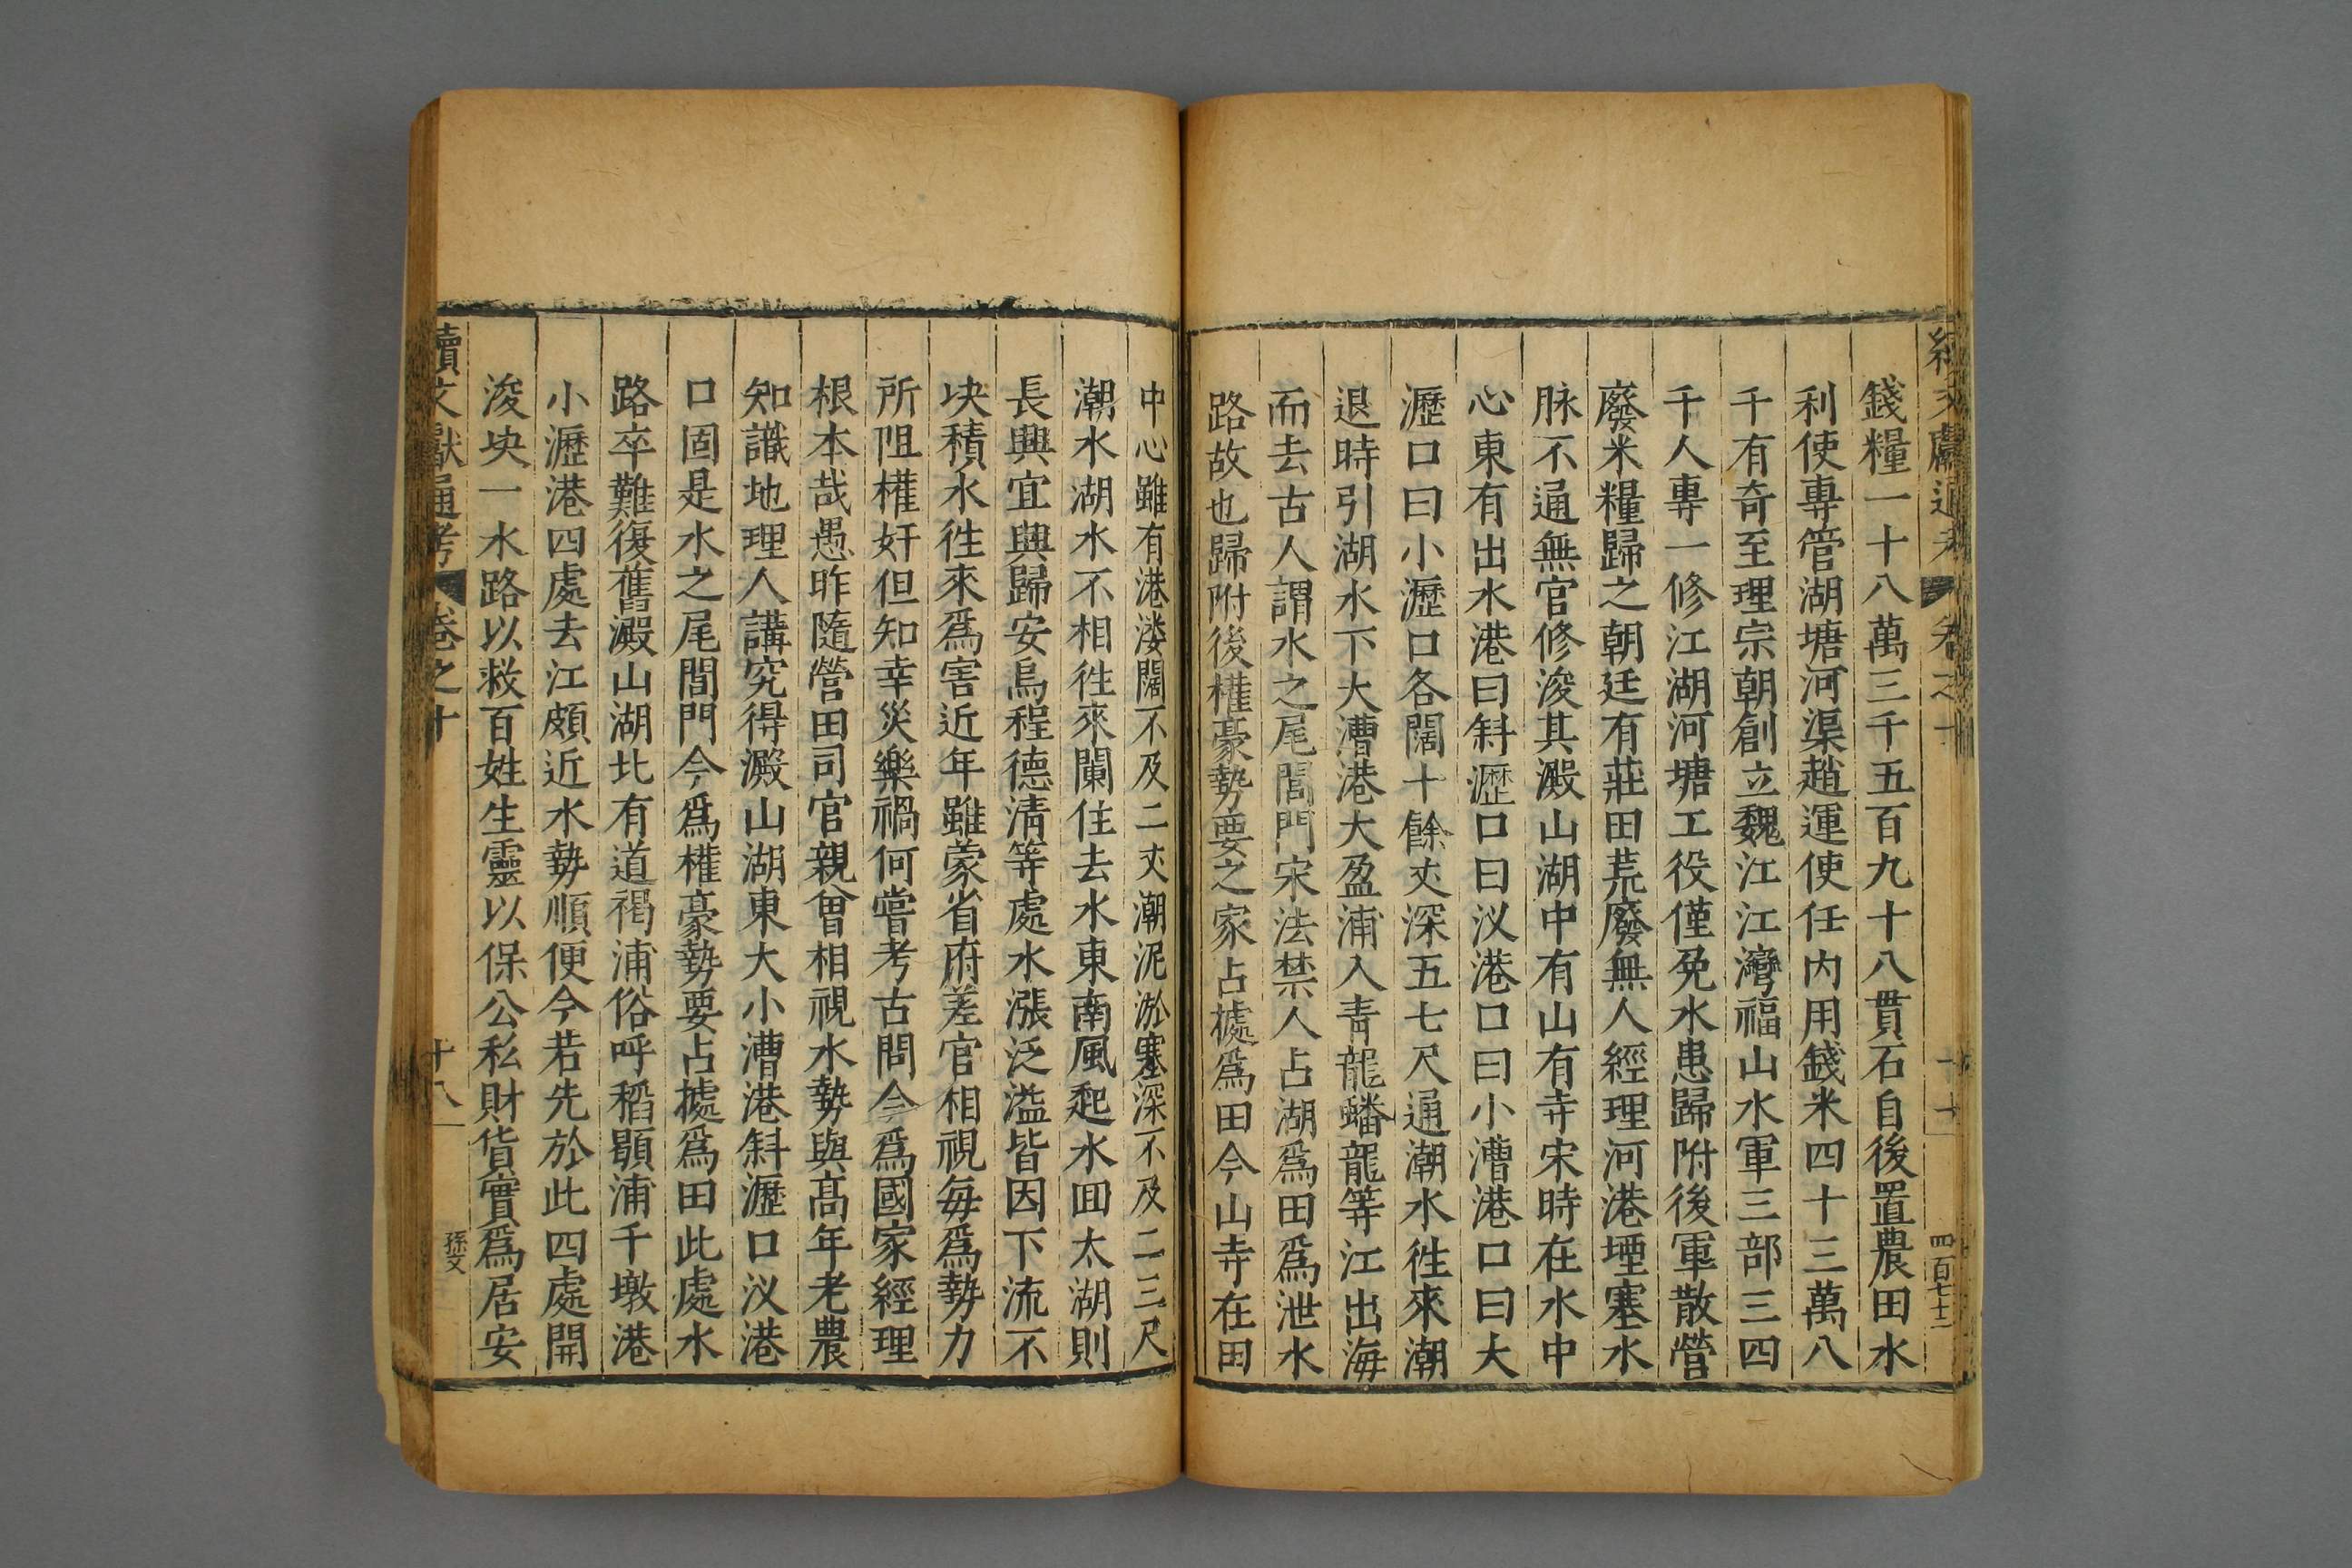 續文獻通考 卷之十
錢糧一十八萬三千五百九十八貫石自後置農田水
利使專管湖塘河渠趙運使任内用錢米四十三萬八
千有奇至理宗朝創立魏江江灣福山水軍三部三四
千人專一修江湖河塘工役僅免水患歸附後軍散營
廢米糧歸之朝廷有莊田荒廢無人經理河港堙塞水
脉不通無官修浚其澱山湖中有山有寺宋時在水中
心東有出水港曰斜瀝口曰汊港口曰小漕港口曰大
瀝口曰小瀝口各闊十餘丈深五七尺通潮水徃來潮
退時引湖水下大漕港大盈浦入青龍蟠龍等江出海
而去古人謂水之尾閭門宋法禁人占湖爲田爲泄水
路故也歸附後權豪勢要之家占據爲田今山寺在田
中心雖有港漊闊不及二丈潮泥淤塞深不及二三尺
潮水湖水不相徃來闌住去水東南風起水回太湖則
長興宜興歸安烏程德清等處水漲泛溢皆因下流不
决積水徃來爲害近年雖蒙省府差官相視每爲勢力
所阻權奸但知幸災樂禍何嘗考古問今爲國家經理
根本哉愚昨隨營田司官親曾相視水勢與高年老農
知識地理人講究得澱山湖東大小漕港斜瀝口汊港
口固是水之尾閭門今爲權豪勢要占據爲田此處水
路卒難復舊澱山湖北有道褐浦俗呼稻顋浦千墩港
小瀝港四處去江頗近水勢順便今若先於此四處開
浚决一水路以救百姓生靈以保公私財貨實爲居安
續文獻通考 卷之十 十八 孫文